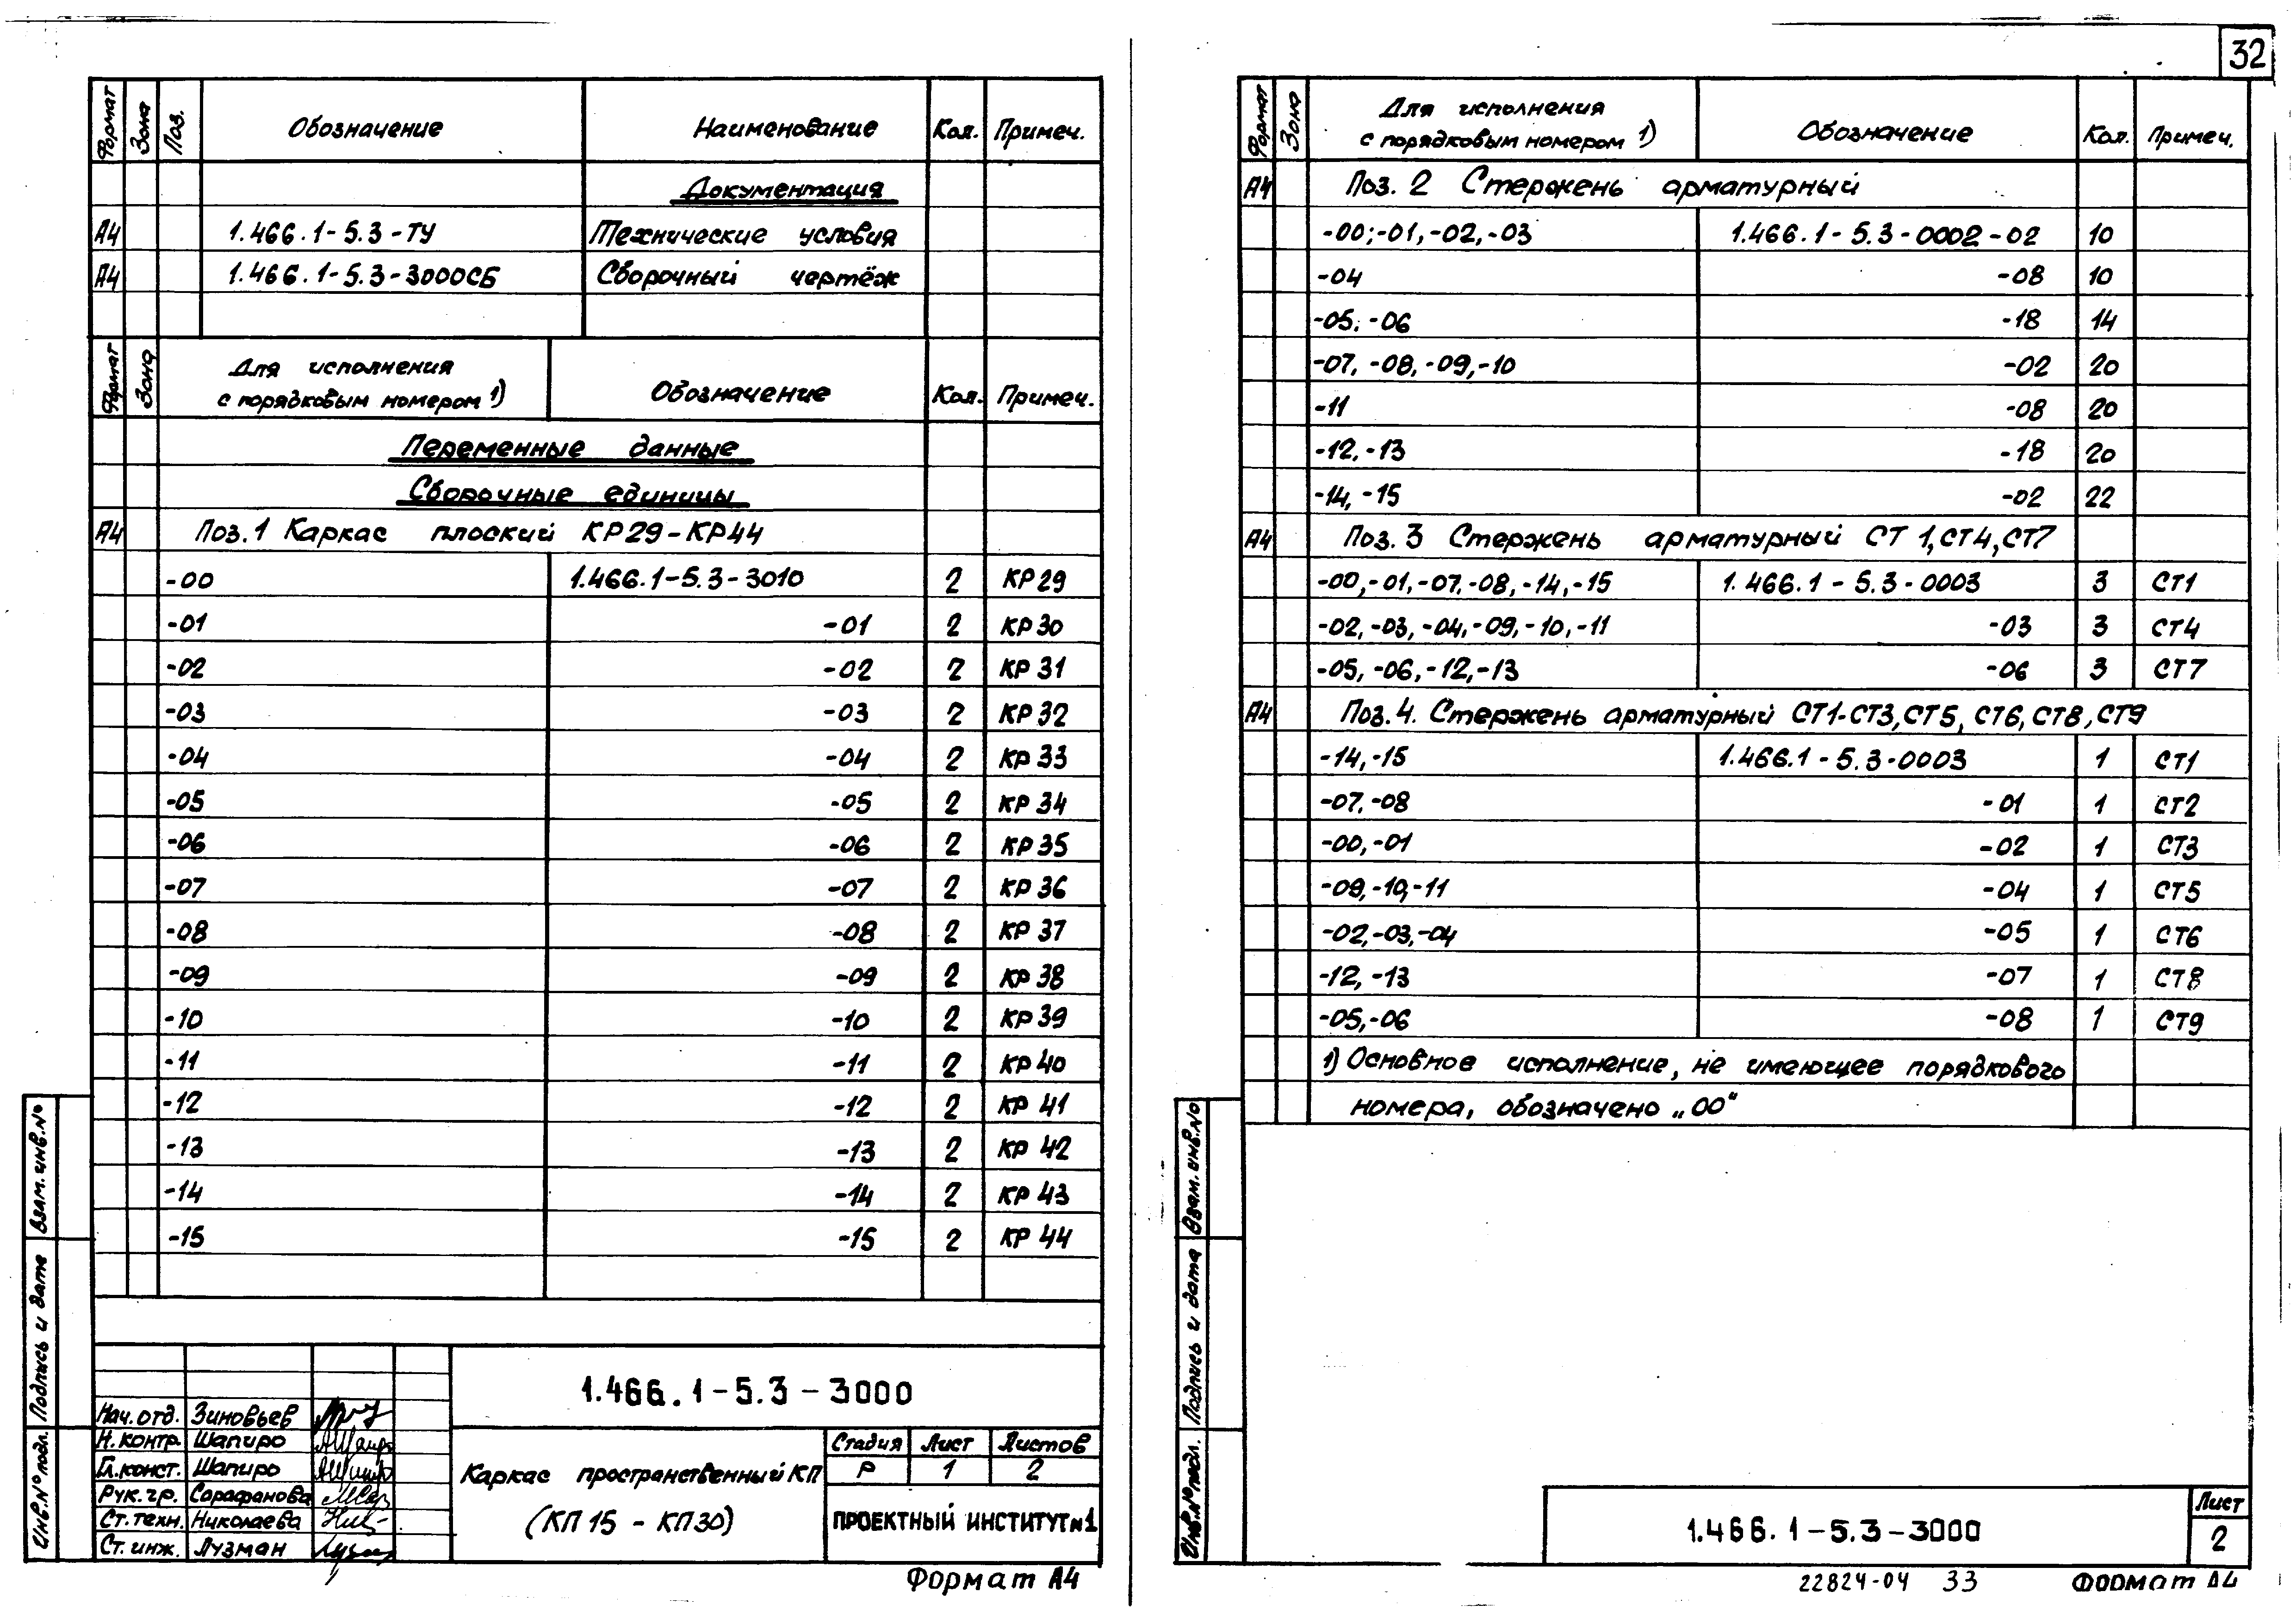 32
Формат Зона Поз. Обозначение Наименование Кол. Примеч.
Документация
А4 1.466.1-5.3-ТУ Технические условия
А4 1.466.1-5.3-3000СБ Сборочный чертёж
Формат Зона Для исполнения с порядковым номером 1) Обозначение Кол. Примеч.
Переменные данные
Сборочные единицы
А4 Поз.1 Каркас плоский КР29-КР44
-00 1.466.1-5.3-3010 2 КР29
-01 -01 2 КР30
-02 -02 2 КР31
-03 -03 2 КР32
-04 -04 2 КР33
-05 -05 2 КР34
-06 -06 2 КР35
-07 -07 2 КР36
-08 -08 2 КР37
-09 -09 2 КР38
-10 -10 2 КР39
-11 -11 2 КР40
-12 -12 2 КР41
-13 -13 2 КР42
-14 -14 2 КР43
-15 -15 2 КР44
Взам. инв. №
Подпись и дата
Инв. № подл.
1.466.1-5.3-3000
Нач. отд. Зиновьев
Н. контр. Шапиро
Гл. конст. Шапиро
Рук. гр. Сарафанова
Ст. техн. Николаева
Ст. инж. Лузман
Каркас пространственный КП
(КП15 - КП30)
Стадия Лист Листов
Р 1 2
ПРОЕКТНЫЙ ИНСТИТУТ №1
Формат А4
Формат Зона Для исполнения с порядковым номером 1) Обозначение Кол. Примеч.
А4 Поз. 2 Стержень арматурный
-00;-01,-02,-03 1.466.1-5.3-0002-02 10
-04 -08 10
-05; -06 -18 14
-07, -08, -09,-10 -02 20
-11 -08 20
-12,-13 -18 20
-14, -15 -02 22
А4 Поз. 3 Стержень арматурный СТ 1,СТ4,СТ7
-00,-01,-07,-08,-14,-15 1.466.1-5.3-0003 3 СТ1
-02,-03,-04,-09,-10,-11 -03 3 СТ4
-05, -06,-12,-13 -06 3 СТ7
А4 Поз.4. Стержень арматурный СТ1-СТ3,СТ5, СТ6,СТ8,СТ9
-14,-15 1.466.1-5.3-0003 1 СТ1
-07,-08 -01 1 СТ2
-00,-01 -02 1 СТ3
-09,-10,-11 -04 1 СТ5
-02,-03,-04 -05 1 СТ6
-12,-13 -07 1 СТ8
-05,-06 -08 1 СТ9
1) Основное исполнение, не имеющее порядкового
номера, обозначено „00“
Взам. инв. №
Подпись и дата
Инв. № подл.
1.466.1-5.3-3000
Лист
2
22824-04 33 Формат А4